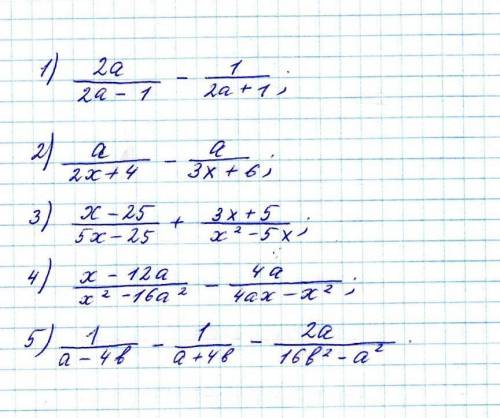 1) 2a/(2a-1) - 1/(2a+1);
2) a/(2x+4) - a/(3x+6);
3) (x-25)/(5x-25) + (3x+5)/(x²-5x);
4) (x-12a)/(x²-16a²) - 4a/(4ax-x²);
5) 1/(a-4b) - 1/(a+4b) - 2a/(16b²-a²).